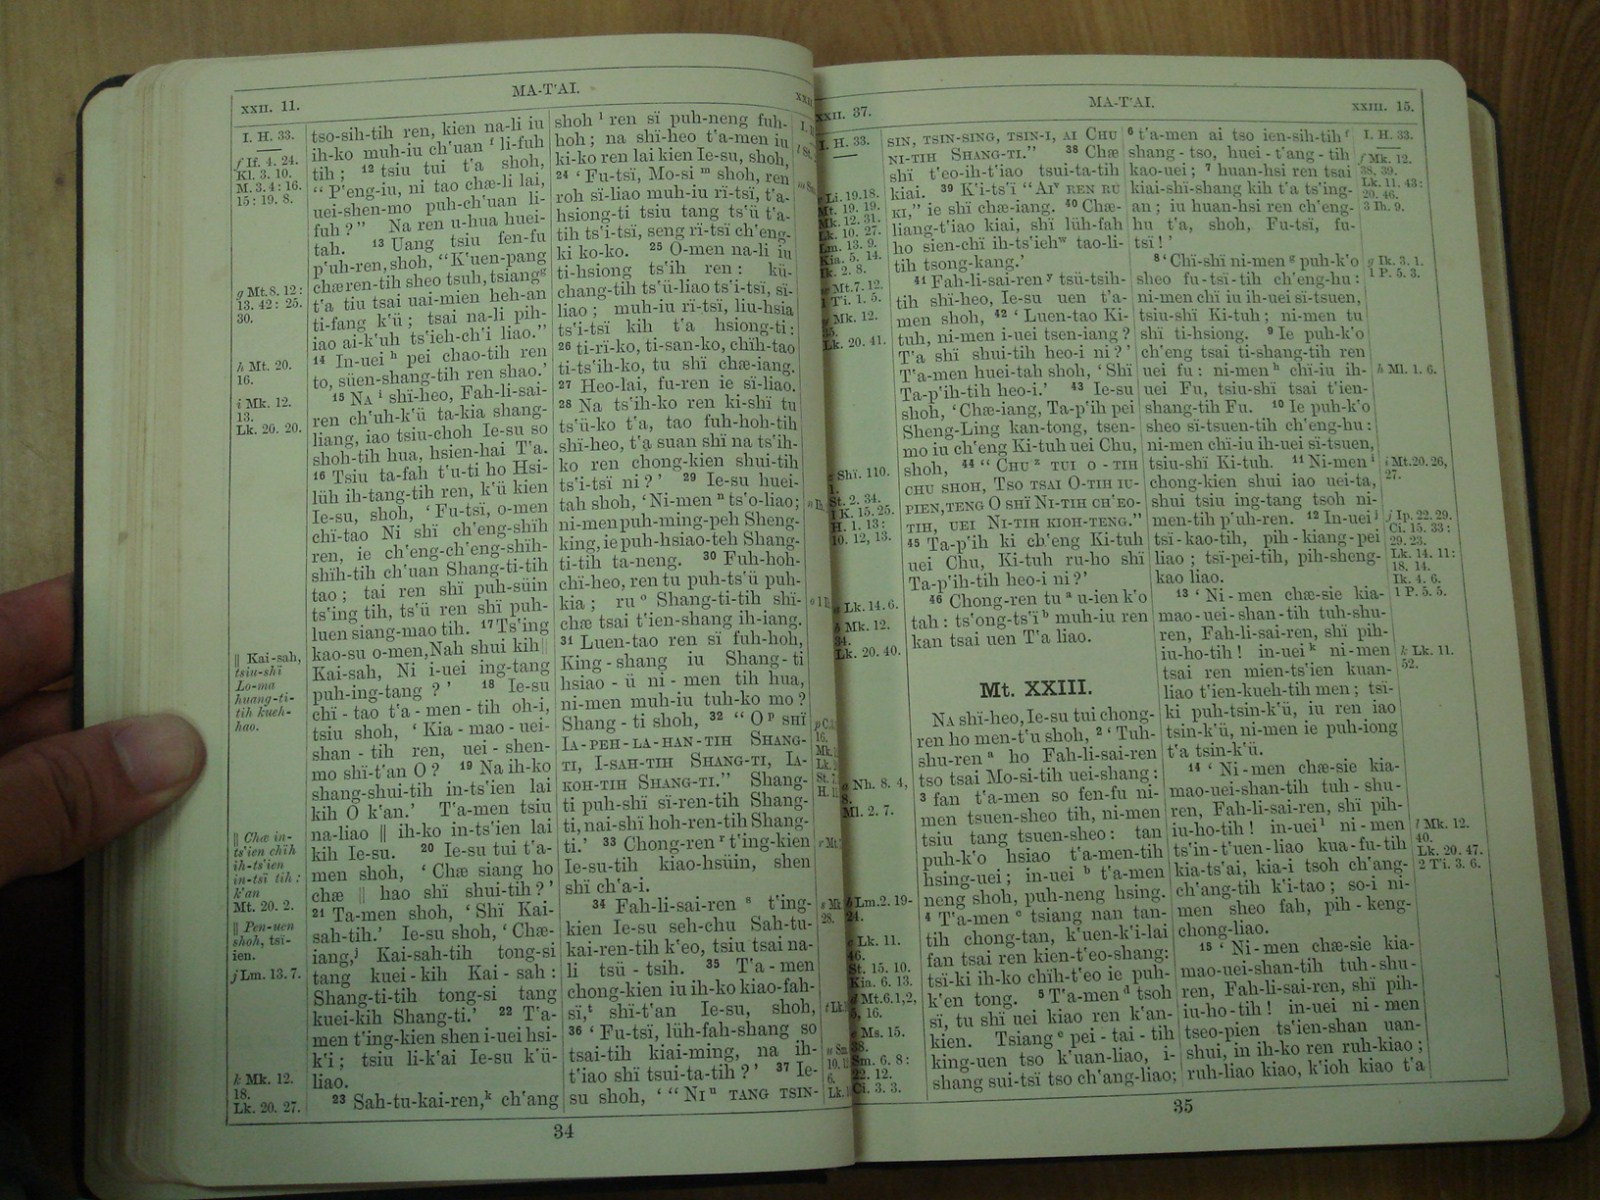 XXII. 11.
MA-T'AI.
I. H. 33.
f If. 4. 24.
Kl. 3. 10.
M. 3. 4: 16.
15: 19. 8.
g Mt. 8. 12:
13. 42: 25.
30.
h Mt. 20.
16.
i Mk. 12.
13.
Lk. 20. 20.
|| Kai-sah,
tsiu-shï
Lo-ma
huang-ti-
tih kueh-
hao.
|| Chæ in-
ts'ien chïh
ih-ts'ien
in-tsï tih:
k'an
Mt. 20. 2.
|| Pen-uen
shoh, tsï-
ien.
j Lm. 13. 7.
k Mk. 12.
18.
Lk. 20. 27.
tso-sih-tih ren, kien na-li iu
ih-ko muh-iu ch'uan f li-fuh
tih; 12 tsiu tui t'a shoh,
“P'eng-iu, ni tao chæ-li lai,
uei-shen-mo puh-ch'uan li-
fuh?” Na ren u-hua huei-
tah. 13 Uang tsiu fen-fu
p'uh-ren, shoh, “K'uen-pang
chæren-tih sheo tsuh, tsiang g
t'a tiu tsai uai-mien heh-an
ti-fang k'ü; tsai na-li pih-
iao ai-k'uh ts'ieh-ch'i liao.”
14 In-uei h pei chao-tih ren
to, süen-shang-tih ren shao.'
15 NA i shï-heo, Fah-li-sai-
ren ch'uh-k'ü ta-kia shang-
liang, iao tsiu-choh Ie-su so
shoh-tih hua, hsien-hai T'a.
16 Tsiu ta-fah t'u-ti ho Hsi-
lüh ih-tang-tih ren, k'ü kien
Ie-su, shoh, ‘Fu-tsï, o-men
chï-tao Ni shï ch'eng-shïh
ren, ie ch'eng-ch'eng-shïh-
shïh-tih ch'uan Shang-ti-tih
tao; tai ren shï puh-süin
ts'ing tih, ts'ü ren shï puh-
luen siang-mao tih. 17 Ts'ing
kao-su o-men, Nah shui kih ||
Kai-sah, Ni i-uei ing-tang
puh-ing-tang?' 18 Ie-su
chï-tao t'a-men-tih oh-i,
tsiu shoh, ‘Kia-mao-uei-
shan-tih ren, uei-shen-
mo shï-t'an O? 19 Na ih-ko
shang-shui-tih in-ts'ien lai
kih O k'an.' T'a-men tsiu
na-liao || ih-ko in-ts'ien lai
kih Ie-su. 20 Ie-su tui t'a-
men shoh, ‘Chæ siang ho
chæ || hao shï shui-tih?'
21 Ta-men shoh, ‘Shï Kai-
sah-tih.' Ie-su shoh, ‘Chæ-
iang, j Kai-sah-tih tong-si
tang kuei-kih Kai-sah:
Shang-ti-tih tong-si tang
kuei-kih Shang-ti.' 22 T'a-
men t'ing-kien shen i-uei hsi-
k'i; tsiu li-k'ai Ie-su k'ü-
liao.
23 Sah-tu-kai-ren, k ch'ang
shoh l ren sï puh-neng fuh-
hoh; na shï-heo t'a-men iu
ki-ko ren lai kien Ie-su, shoh,
24 ‘Fu-tsï, Mo-si m shoh, ren
roh sï-liao muh-iu rï-tsï, t'a-
hsiong-ti tsiu tang ts'ü t'a-
tih ts'i-tsï, seng rï-tsï ch'eng-
ki ko-ko. 25 O-men na-li iu
ti-hsiong ts'ih ren: kü-
chang-tih ts'ü-liao ts'i-tsï, sï-
liao; muh-iu rï-tsï, liu-hsia
ts'i-tsï kih t'a hsiong-ti:
26 ti-rï-ko, ti-san-ko, chïh-tao
ti-ts'ih-ko, tu shï chæ-iang.
27 Heo-lai, fu-ren ie sï-liao.
28 Na ts'ih-ko ren ki-shï tu
ts'ü-ko t'a, tao fuh-hoh-tih
shï-heo, t'a suan shï na ts'ih-
ko ren chong-kien shui-tih
ts'i-tsï ni?' 29 Ie-su huei-
tah shoh, ‘Ni-men n ts'o-liao;
ni-men puh-ming-peh Sheng-
king, ie puh-hsiao-teh Shang-
ti-tih ta-neng. 30 Fuh-hoh-
chï-heo, ren tu puh-ts'ü puh-
kia; ru o Shang-ti-tih shï-
chæ tsai t'ien-shang ih-iang.
31 Luen-tao ren sï fuh-hoh,
King-shang iu Shang-ti
hsiao-ü ni-men tih hua,
ni-men muh-iu tuh-ko mo?
Shang-ti shoh, 32 “O p SHÏ
IA-PEH-LA-HAN-TIH SHANG-
TI, I-SAH-TIH SHANG-TI, IA-
KOH-TIH SHANG-TI.” Shang-
ti puh-shï sï-ren-tih Shang-
ti, nai-shï hoh-ren-tih Shang-
ti.' 33 Chong-ren r t'ing-kien
Ie-su-tih kiao-hsüin, shen
shï ch'a-i.
34 Fah-li-sai-ren s t'ing-
kien Ie-su seh-chu Sah-tu-
kai-ren-tih k'eo, tsiu tsai na-
li tsü-tsih. 35 T'a-men
chong-kien iu ih-ko kiao-fah-
sï, t shï-t'an Ie-su, shoh,
36 ‘Fu-tsï, lüh-fah-shang so
tsai-tih kiai-ming, na ih-
t'iao shï tsui-ta-tih?' 37 Ie-
su shoh, ‘“NI u TANG TSIN-
34
XXII. 37.
MA-T'AI.
XXIII. 15.
I. H. 33.
Li. 19. 18.
Mt. 19. 19.
Mk. 12. 31.
Lk. 10. 27.
Lm. 13. 9.
Kia. 5. 14.
Ik. 2. 8.
Mt. 7. 12.
1 Ti. 1. 5.
Mk. 12.
35.
Lk. 20. 41.
z Shï. 110.
1.
St. 2. 34.
1 K. 15. 25.
H. 1. 13:
10. 12, 13.
a Lk. 14. 6.
b Mk. 12.
34.
Lk. 20. 40.
a Nh. 8. 4,
8.
Ml. 2. 7.
b Lm. 2. 19-
24.
c Lk. 11.
46.
St. 15. 10.
Kia. 6. 13.
d Mt. 6. 1, 2,
5, 16.
e Ms. 15.
38.
Sm. 6. 8:
22. 12.
Ci. 3. 3.
SIN, TSIN-SING, TSIN-I, AI CHU
NI-TIH SHANG-TI.” 38 Chæ
shï t'eo-ih-t'iao tsui-ta-tih
kiai. 39 K'i-ts'ï “AI v REN RU
KI,” ie shï chæ-iang. 40 Chæ-
liang-t'iao kiai, shï lüh-fah
ho sien-chï ih-ts'ieh w tao-li-
tih tsong-kang.'
41 Fah-li-sai-ren y tsü-tsih-
tih shï-heo, Ie-su uen t'a-
men shoh, 42 ‘Luen-tao Ki-
tuh, ni-men i-uei tsen-iang?
T'a shï shui-tih heo-i ni?'
T'a-men huei-tah shoh, ‘Shï
Ta-p'ih-tih heo-i.' 43 Ie-su
shoh, ‘Chæ-iang, Ta-p'ih pei
Sheng-Ling kan-tong, tsen-
mo iu ch'eng Ki-tuh uei Chu,
shoh, 44 “CHU z TUI O-TIH
CHU SHOH, TSO TSAI O-TIH IU-
PIEN, TENG O SHÏ NI-TIH CH'EO-
TIH, UEI NI-TIH KIOH-TENG.”
45 Ta-p'ih ki ch'eng Ki-tuh
uei Chu, Ki-tuh ru-ho shï
Ta-p'ih-tih heo-i ni?'
46 Chong-ren tu a u-ien k'o
tah: ts'ong-ts'ï b muh-iu ren
kan tsai uen T'a liao.
Mt. XXIII.
NA shï-heo, Ie-su tui chong-
ren ho men-t'u shoh, 2 ‘Tuh-
shu-ren a ho Fah-li-sai-ren
tso tsai Mo-si-tih uei-shang:
3 fan t'a-men so fen-fu ni-
men tsuen-sheo tih, ni-men
tsiu tang tsuen-sheo: tan
puh-k'o hsiao t'a-men-tih
hsing-uei; in-uei b t'a-men
neng shoh, puh-neng hsing.
4 T'a-men c tsiang nan tan-
tih chong-tan, k'uen-k'i-lai
fan tsai ren kien-t'eo-shang:
tsï-ki ih-ko chïh-t'eo ie puh-
k'en tong. 5 T'a-men d tsoh
sï, tu shï uei kiao ren k'an-
kien. Tsiang e pei-tai-tih
king-uen tso k'uan-liao, i-
shang sui-tsï tso ch'ang-liao;
6 t'a-men ai tso ien-sih-tih f
shang-tso, huei-t'ang-tih
kao-uei; 7 huan-hsi ren tsai
kiai-shï-shang kih t'a ts'ing-
an; iu huan-hsi ren ch'eng-
hu t'a, shoh, Fu-tsï, fu-
tsï!'
8 ‘Chï-shï ni-men g puh-k'o
sheo fu-tsï-tih ch'eng-hu:
ni-men chï iu ih-uei sï-tsuen,
tsiu-shï Ki-tuh; ni-men tu
shï ti-hsiong. 9 Ie puh-k'o
ch'eng tsai ti-shang-tih ren
uei fu: ni-men h chï-iu ih-
uei Fu, tsiu-shï tsai t'ien-
shang-tih Fu. 10 Ie puh-k'o
sheo si-tsuen-tih ch'eng-hu:
ni-men chï-iu ih-uei sï-tsuen,
tsiu-shï Ki-tuh. 11 Ni-men i
chong-kien shui iao uei-ta,
shui tsiu ing-tang tsoh ni-
men-tih p'uh-ren. 12 In-uei j
tsï-kao-tih, pih-kiang-pei
liao; tsï-pei-tih, pih-sheng-
kao liao.
13 ‘Ni-men chæ-sie kia-
mao-uei-shan-tih tuh-shu-
ren, Fah-li-sai-ren, shï pih-
iu-ho-tih! in-uei k ni-men
tsai ren mien-ts'ien kuan-
liao t'ien-kueh-tih men; tsï-
ki puh-tsin-k'ü, iu ren iao
tsin-k'ü, ni-men ie puh-iong
t'a tsin-k'ü.
14 ‘Ni-men chæ-sie kia-
mao-uei-shan-tih tuh-shu-
ren, Fah-li-sai-ren, shï pih-
iu-ho-tih! in-uei l ni-men
ts'in-t'uen-liao kua-fu-tih
kia-ts'ai, kia-i tsoh ch'ang-
ch'ang-tih k'i-tao; so-i ni-
men sheo fah, pih-keng-
chong-liao.
15 ‘Ni-men chæ-sie kia-
mao-uei-shan-tih tuh-shu-
ren, Fah-li-sai-ren, shï pih-
iu-ho-tih! in-uei ni-men
tseo-pien ts'ien-shan uan-
shui, in ih-ko ren ruh-kiao;
ruh-liao kiao, k'ioh kiao t'a
I. H. 33.
f Mk. 12.
38, 39.
Lk. 11. 43:
20. 46.
3 Ih. 9.
g Ik. 3. 1.
1 P. 5. 3.
h Ml. 1. 6.
i Mt. 20. 26,
27.
j Ip. 22. 29.
Ci. 15. 33:
29. 23.
Lk. 14. 11:
18. 14.
Ik. 4. 6.
1 P. 5. 5.
k Lk. 11.
52.
l Mk. 12.
40.
Lk. 20. 47.
2 Ti. 3. 6.
35